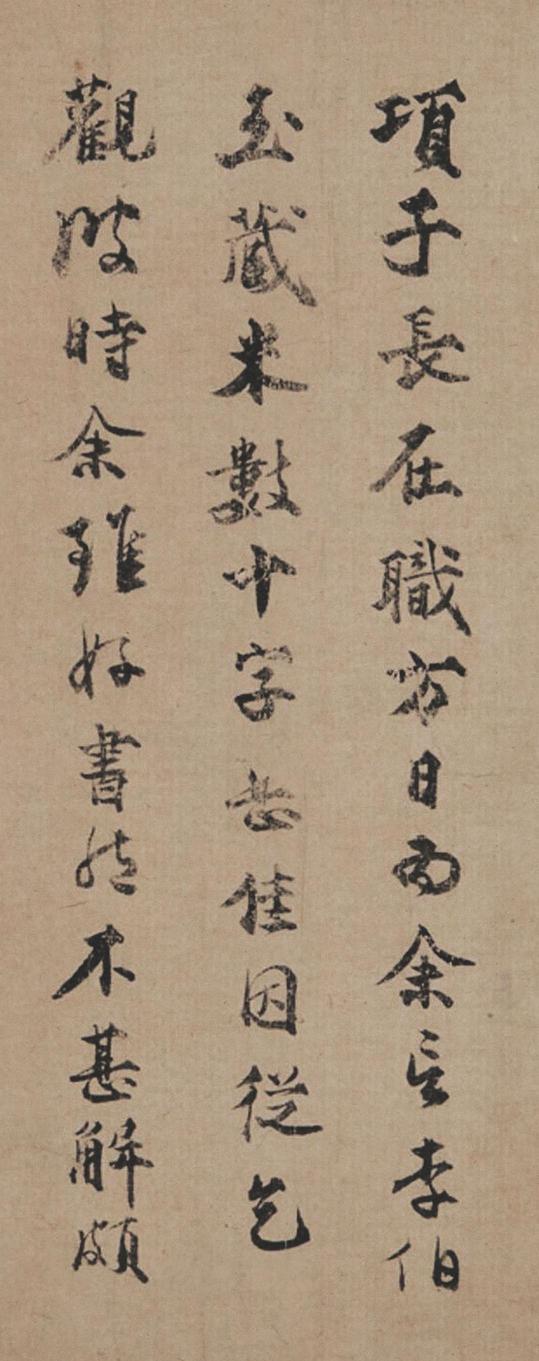 項子長在職方日余言李伯
玉藏米數十字甚佳因從乞
觀彼時余雖好書然不甚解頗